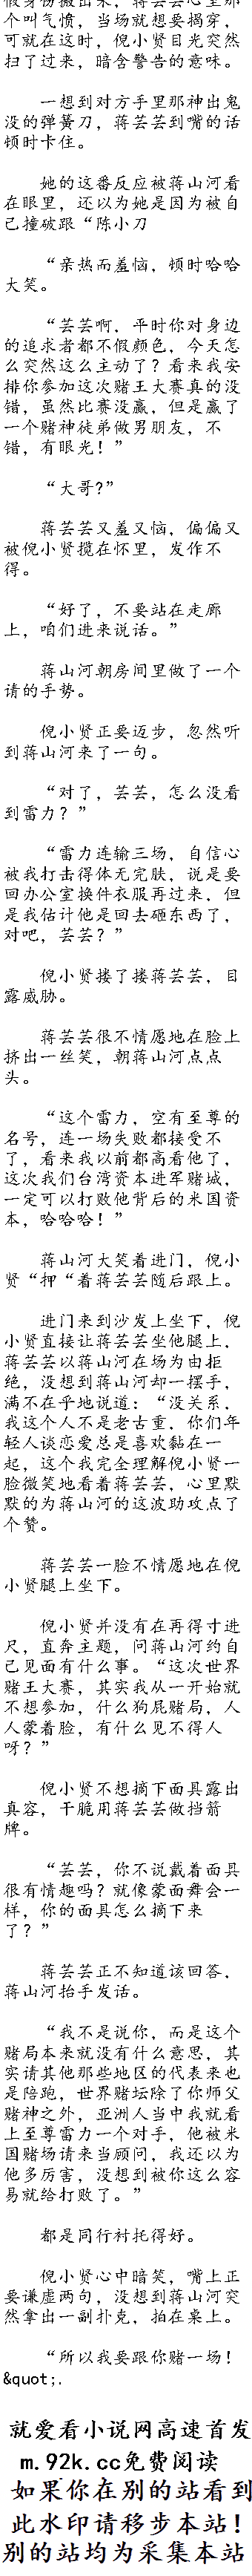 个叫气愤，当场就想要揭穿，
可就在这时，倪小贤目光突然
扫了过来，暗含警告的意味。
一想到对方手里那神出鬼
没的弹簧刀，蒋芸芸到嘴的话
顿时卡住。
她的这番反应被蒋山河看
在眼里，还以为她是因为被自
己撞破跟“陈小刀
“亲热而羞恼，顿时哈哈
大笑。
“芸芸啊，平时你对身边
的追求者都不假颜色，今天怎
么突然这么主动了？看来我安
排你参加这次赌王大赛真的没
错，虽然比赛没赢，但是赢了
一个赌神徒弟做男朋友，不
错，有眼光！”
“大哥?”
蒋芸芸又羞又恼，偏偏又
被倪小贤揽在怀里，发作不
得。
“好了，不要站在走廊
上，咱们进来说话。”
蒋山河朝房间里做了一个
请的手势。
倪小贤正要迈步，忽然听
到蒋山河来了一句。
“对了，芸芸，怎么没看
到雷力？”
“雷力连输三场，自信心
被我打击得体无完肤，说是要
回办公室换件衣服再过来，但
是我估计他是回去砸东西了，
对吧，芸芸？”
倪小贤搂了搂蒋芸芸，目
露威胁。
蒋芸芸很不情愿地在脸上
挤出一丝笑，朝蒋山河点点
头。
“这个雷力，空有至尊的
名号，连一场失败都接受不
了，看来我以前都高看他了，
这次我们台湾资本进军赌城，
一定可以打败他背后的米国资
本，哈哈哈！”
蒋山河大笑着进门，倪小
贤“押“着蒋芸芸随后跟上。
进门来到沙发上坐下，倪
小贤直接让蒋芸芸坐他腿上，
蒋芸芸以蒋山河在场为由拒
绝，没想到蒋山河却一摆手，
满不在乎地说道：“没关系，
我这个人不是老古董，你们年
轻人谈恋爱总是喜欢黏在一
起，这个我完全理解倪小贤一
脸微笑地看着蒋芸芸，心里默
默的为蒋山河的这波助攻点了
个赞。
蒋芸芸一脸不情愿地在倪
小贤腿上坐下。
倪小贤并没有在再得寸进
尺，直奔主题，问蒋山河约自
己见面有什么事。“这次世界
赌王大赛，其实我从一开始就
不想参加，什么狗屁赌局，人
人蒙着脸，有什么见不得人
呀？”
倪小贤不想摘下面具露出
真容，干脆用蒋芸芸做挡箭
牌。
“芸芸，你不说戴着面具
很有情趣吗？就像蒙面舞会一
样，你的面具怎么摘下来
了？”
蒋芸芸正不知道该回答，
蒋山河抬手发话。
“我不是说你，而是这个
赌局本来就没有什么意思，其
实请其他那些地区的代表来也
是陪跑，世界赌坛除了你师父
赌神之外，亚洲人当中我就看
上至尊雷力一个对手，他被米
国赌场请来当顾问，我还以为
他多厉害，没想到被你这么容
易就给打败了。”
都是同行衬托得好。
倪小贤心中暗笑，嘴上正
要谦虚两句，没想到蒋山河突
然拿出一副扑克，拍在桌上。
“所以我要跟你赌一场！
&quot;.
就爱看小说网高速首发
m.92k.cc免费阅读
如果你在别的站看到
此水印请移步本站！
别的站均为采集本站